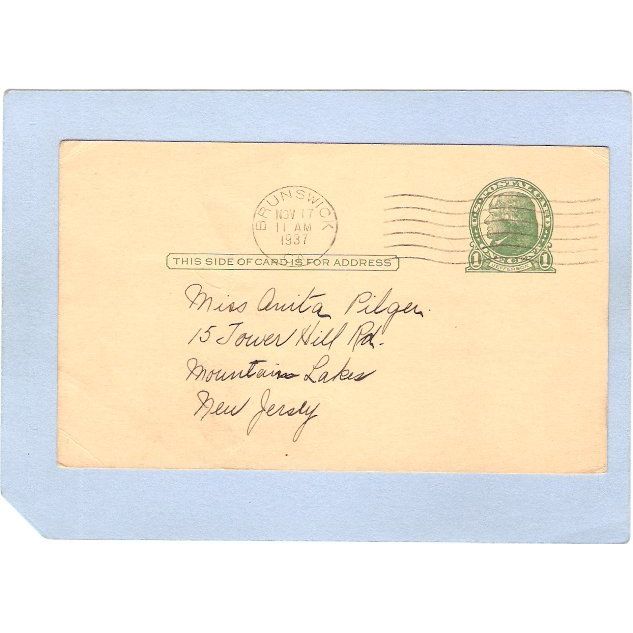 BRUNSWICK
NOV 17
11 AM
1937
U.S. POSTAL CARD
1 1
THIS SIDE OF CARD IS FOR ADDRESS
Miss Anita Pilger.
15 Tower Hill Rd.
Mountain Lakes
New Jersey